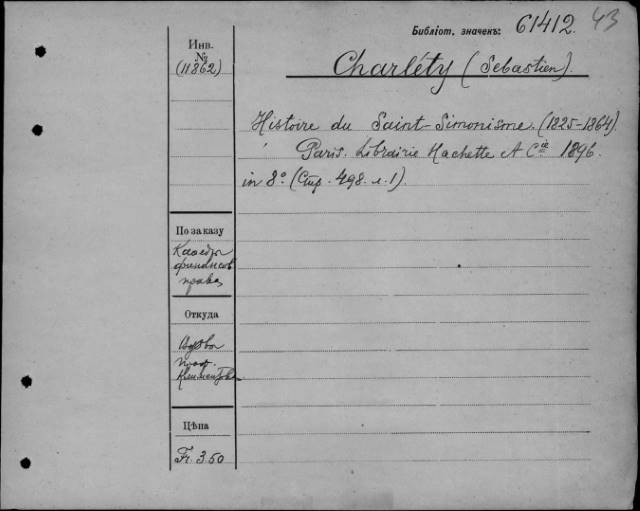 Библіот. значекъ: 61412. 43
Инв.
№
(11862)
Charléty (Sebastien).
Histoire du Saint-Simonisme. (1825-1864).
Paris. Librairie Hachette et Cie 1896.
in 8° (Стр. 498. л. 1).
По заказу
Каѳедры
финансов.
права
Откуда
Вдова
проф.
Цѣна
Fr. 3.50